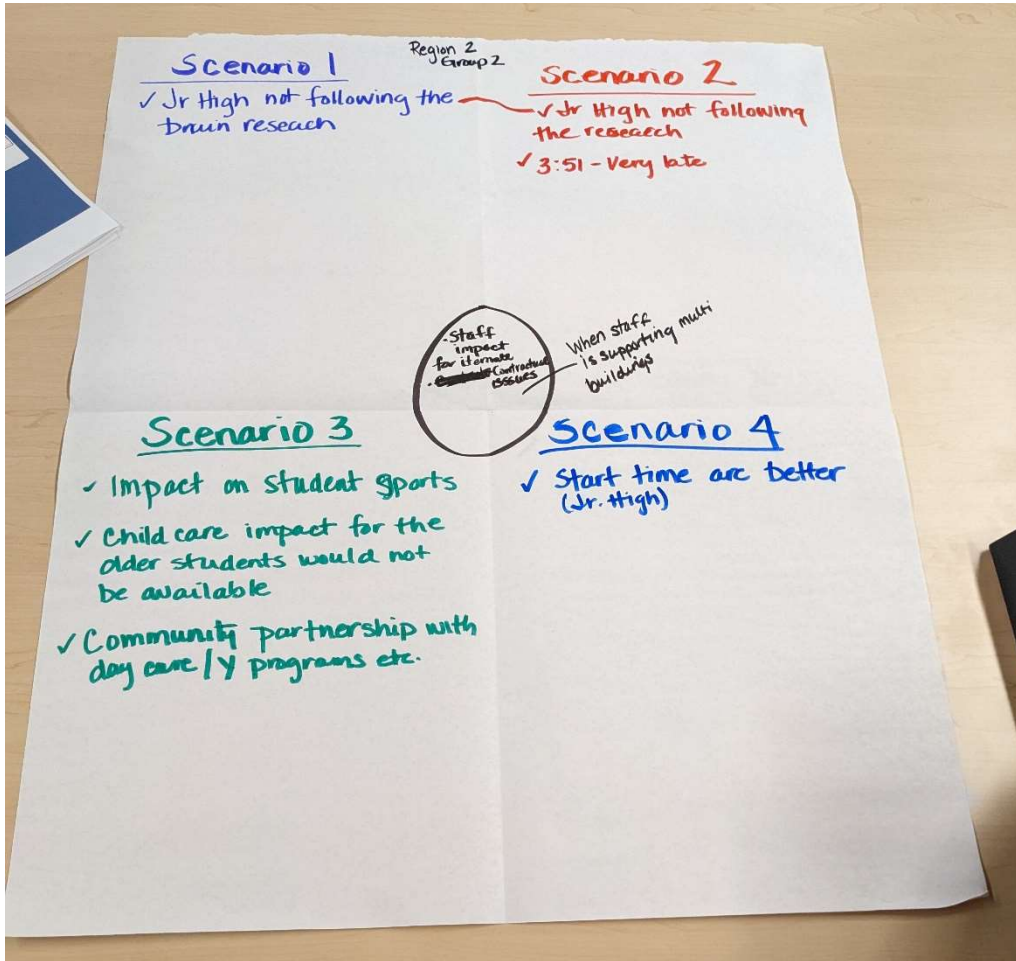 Region 2
Group 2
Scenario 1
✓ Jr High not following the
bruin reseach
Scenario 2
✓ Jr High not following
the research
✓ 3:51 - Very late
• Staff
impact
for iternate
• Contractual
issues
When staff
is supporting multi
buildings
Scenario 3
✓ Impact on student sports
✓ Child care impact for the
older students would not
be available
✓ Community partnership with
day care / Y programs etc.
Scenario 4
✓ Start time are better
(Jr. High)